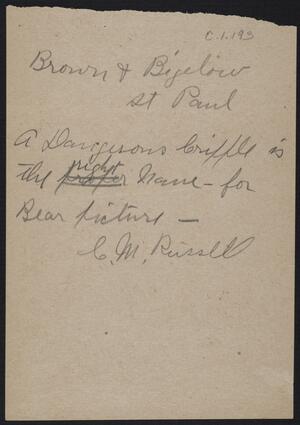 C.1.193
Brown & Bigelow
St Paul
A Dangerous Cripple is
right
the proper Name - for
Bear picture -
C. M. Russell